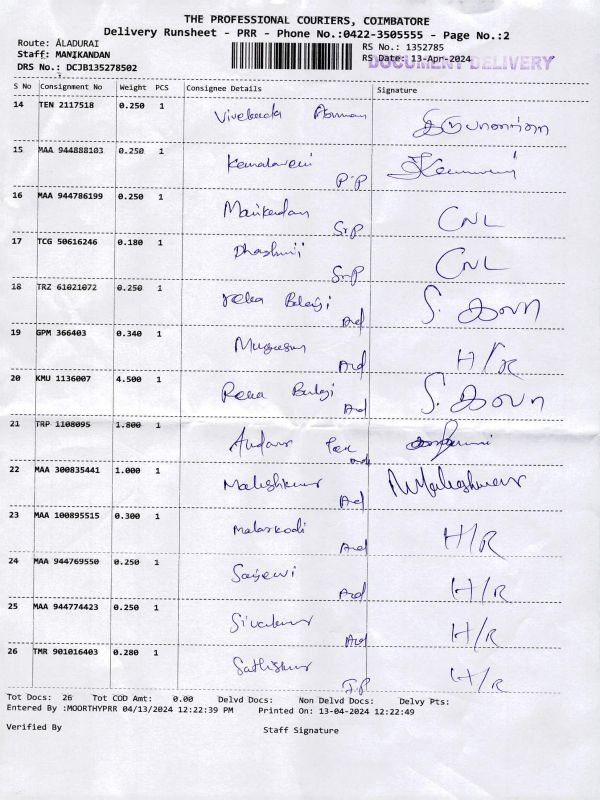 THE PROFESSIONAL COURIERS, COIMBATORE
Delivery Runsheet - PRR - Phone No.:0422-3505555 - Page No.:2
Route: ALADURAI
RS No.: 1352785
Staff: MANIKANDAN
RS Date: 13-Apr-2024
DOCUMENT DELIVERY
DRS No.: DCJB135278502
S No Consignment No Weight PCS Consignee Details Signature
14 TEN 2117518 0.250 1
15 MAA 944888103 0.250 1 P.P
16 MAA 944786199 0.250 1 Manikandan SrP CNL
17 TCG 50616246 0.180 1 SrP CNL
18 TRZ 61021072 0.250 1 Balaji Ard
19 GPM 366403 0.340 1 Murugesan Ard H/R
20 KMU 1136007 4.500 1 Reka Balaji Ard
21 TRP 1108095 1.800 1 Tex
22 MAA 300835441 1.000 1 Maheshkumar Ard
23 MAA 100895515 0.300 1 Malarkodi Ard H/R
24 MAA 944769550 0.250 1 Ard H/R
25 MAA 944774423 0.250 1 Sivakumar Ard H/R
26 TMR 901016403 0.280 1 Sathiskumar H/R
Tot Docs: 26 Tot COD Amt: 0.00 Delvd Docs: Non Delvd Docs: Delvy Pts:
Entered By :MOORTHYPRR 04/13/2024 12:22:39 PM Printed On: 13-04-2024 12:22:49
Verified By
Staff Signature